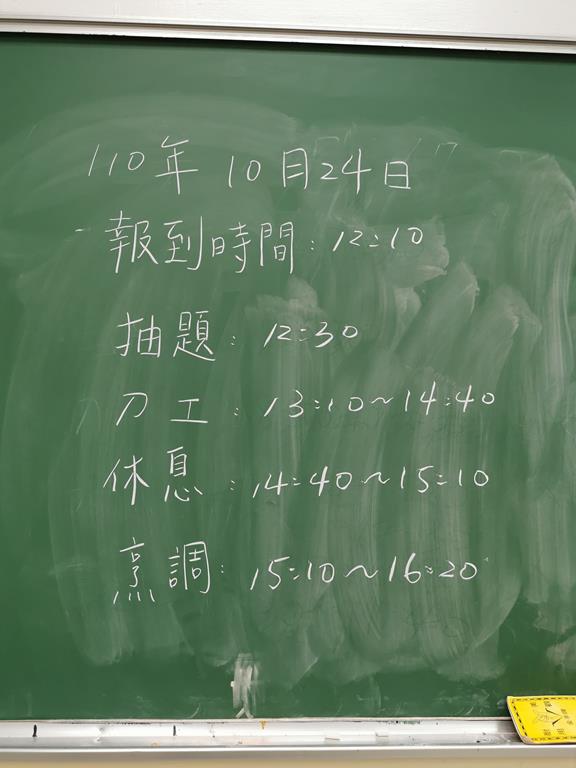 110年10月24日
報到時間:12:10
抽題:12:30
刀工:13:10~14:40
休息:14:40~15:10
烹調:15:10~16:20